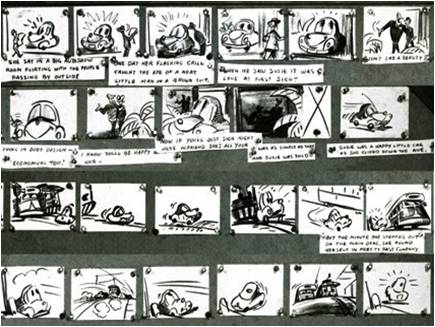 SHE SAT IN A BIG AUTO SHOW
ROOM FLIRTING WITH THE PEOPLE
PASSING BY OUTSIDE
ONE DAY HER FLASHING GRILL
CAUGHT THE EYE OF A NEAT
LITTLE MAN IN A BROWN SUIT.
WHEN HE SAW SUSIE IT WAS
LOVE AT FIRST SIGHT
ISN'T SHE A BEAUTY!
IN BODY DESIGN —
ECONOMICAL TOO!
I KNOW YOU'LL BE HAPPY
NOW IF YOU'LL JUST SIGN RIGHT
WAS AS SIMPLE AS THAT
AND SUSIE WAS SOLD
SUSIE WAS A HAPPY LITTLE CAR
AS SHE GLIDED DOWN THE AVE.
BUT THE MINUTE SHE STEPPED OUT
ON THE MAIN DRAG, SHE FOUND
HERSELF IN PRETTY FAST COMPANY.